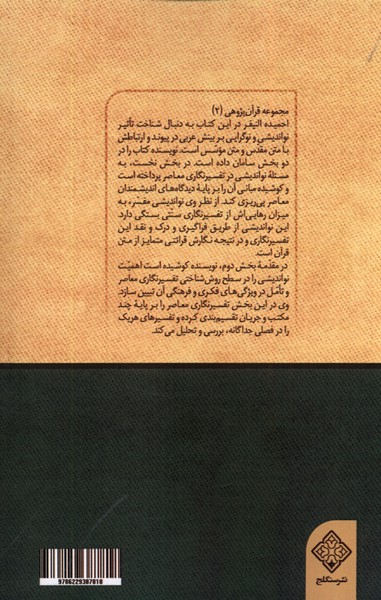 مجموعه قرآن‌پژوهی (۲)
احمیده النیفر در این کتاب به دنبال شناخت تأثیر
نواندیشی و نوگرایی بر بینش عربی در پیوند و ارتباطش
با متن مقدس و متن مؤسس است. نویسنده کتاب را در
دو بخش سامان داده است. در بخش نخست، به
مسئلهٔ نواندیشی در تفسیرنگاری معاصر پرداخته است
و کوشیده مبانی آن را بر پایهٔ دیدگاه‌های اندیشمندان
معاصر پی‌ریزی کند. از نظر وی نواندیشی مفسّر، به
میزان رهایی‌اش از تفسیرنگاری سنّتی بستگی دارد.
این نواندیشی از طریق فراگیری و درک و نقد این
تفسیرنگاری و در نتیجه نگارش قرائتی متمایز از متن
قرآن است.
در مقدّمهٔ بخش دوم، نویسنده کوشیده است اهمیّت
نواندیشی را در سطح روش‌شناختی تفسیرنگاری معاصر
و تأمّل در ویژگی‌های فکری و فرهنگی آن تبیین سازد.
وی در این بخش تفسیرنگاری معاصر را بر پایهٔ چند
مکتب و جریان تقسیم‌بندی کرده و تفسیرهای هریک
را در فصلی جداگانه، بررسی و تحلیل می‌کند.
نشر سنگلج
9786229307818